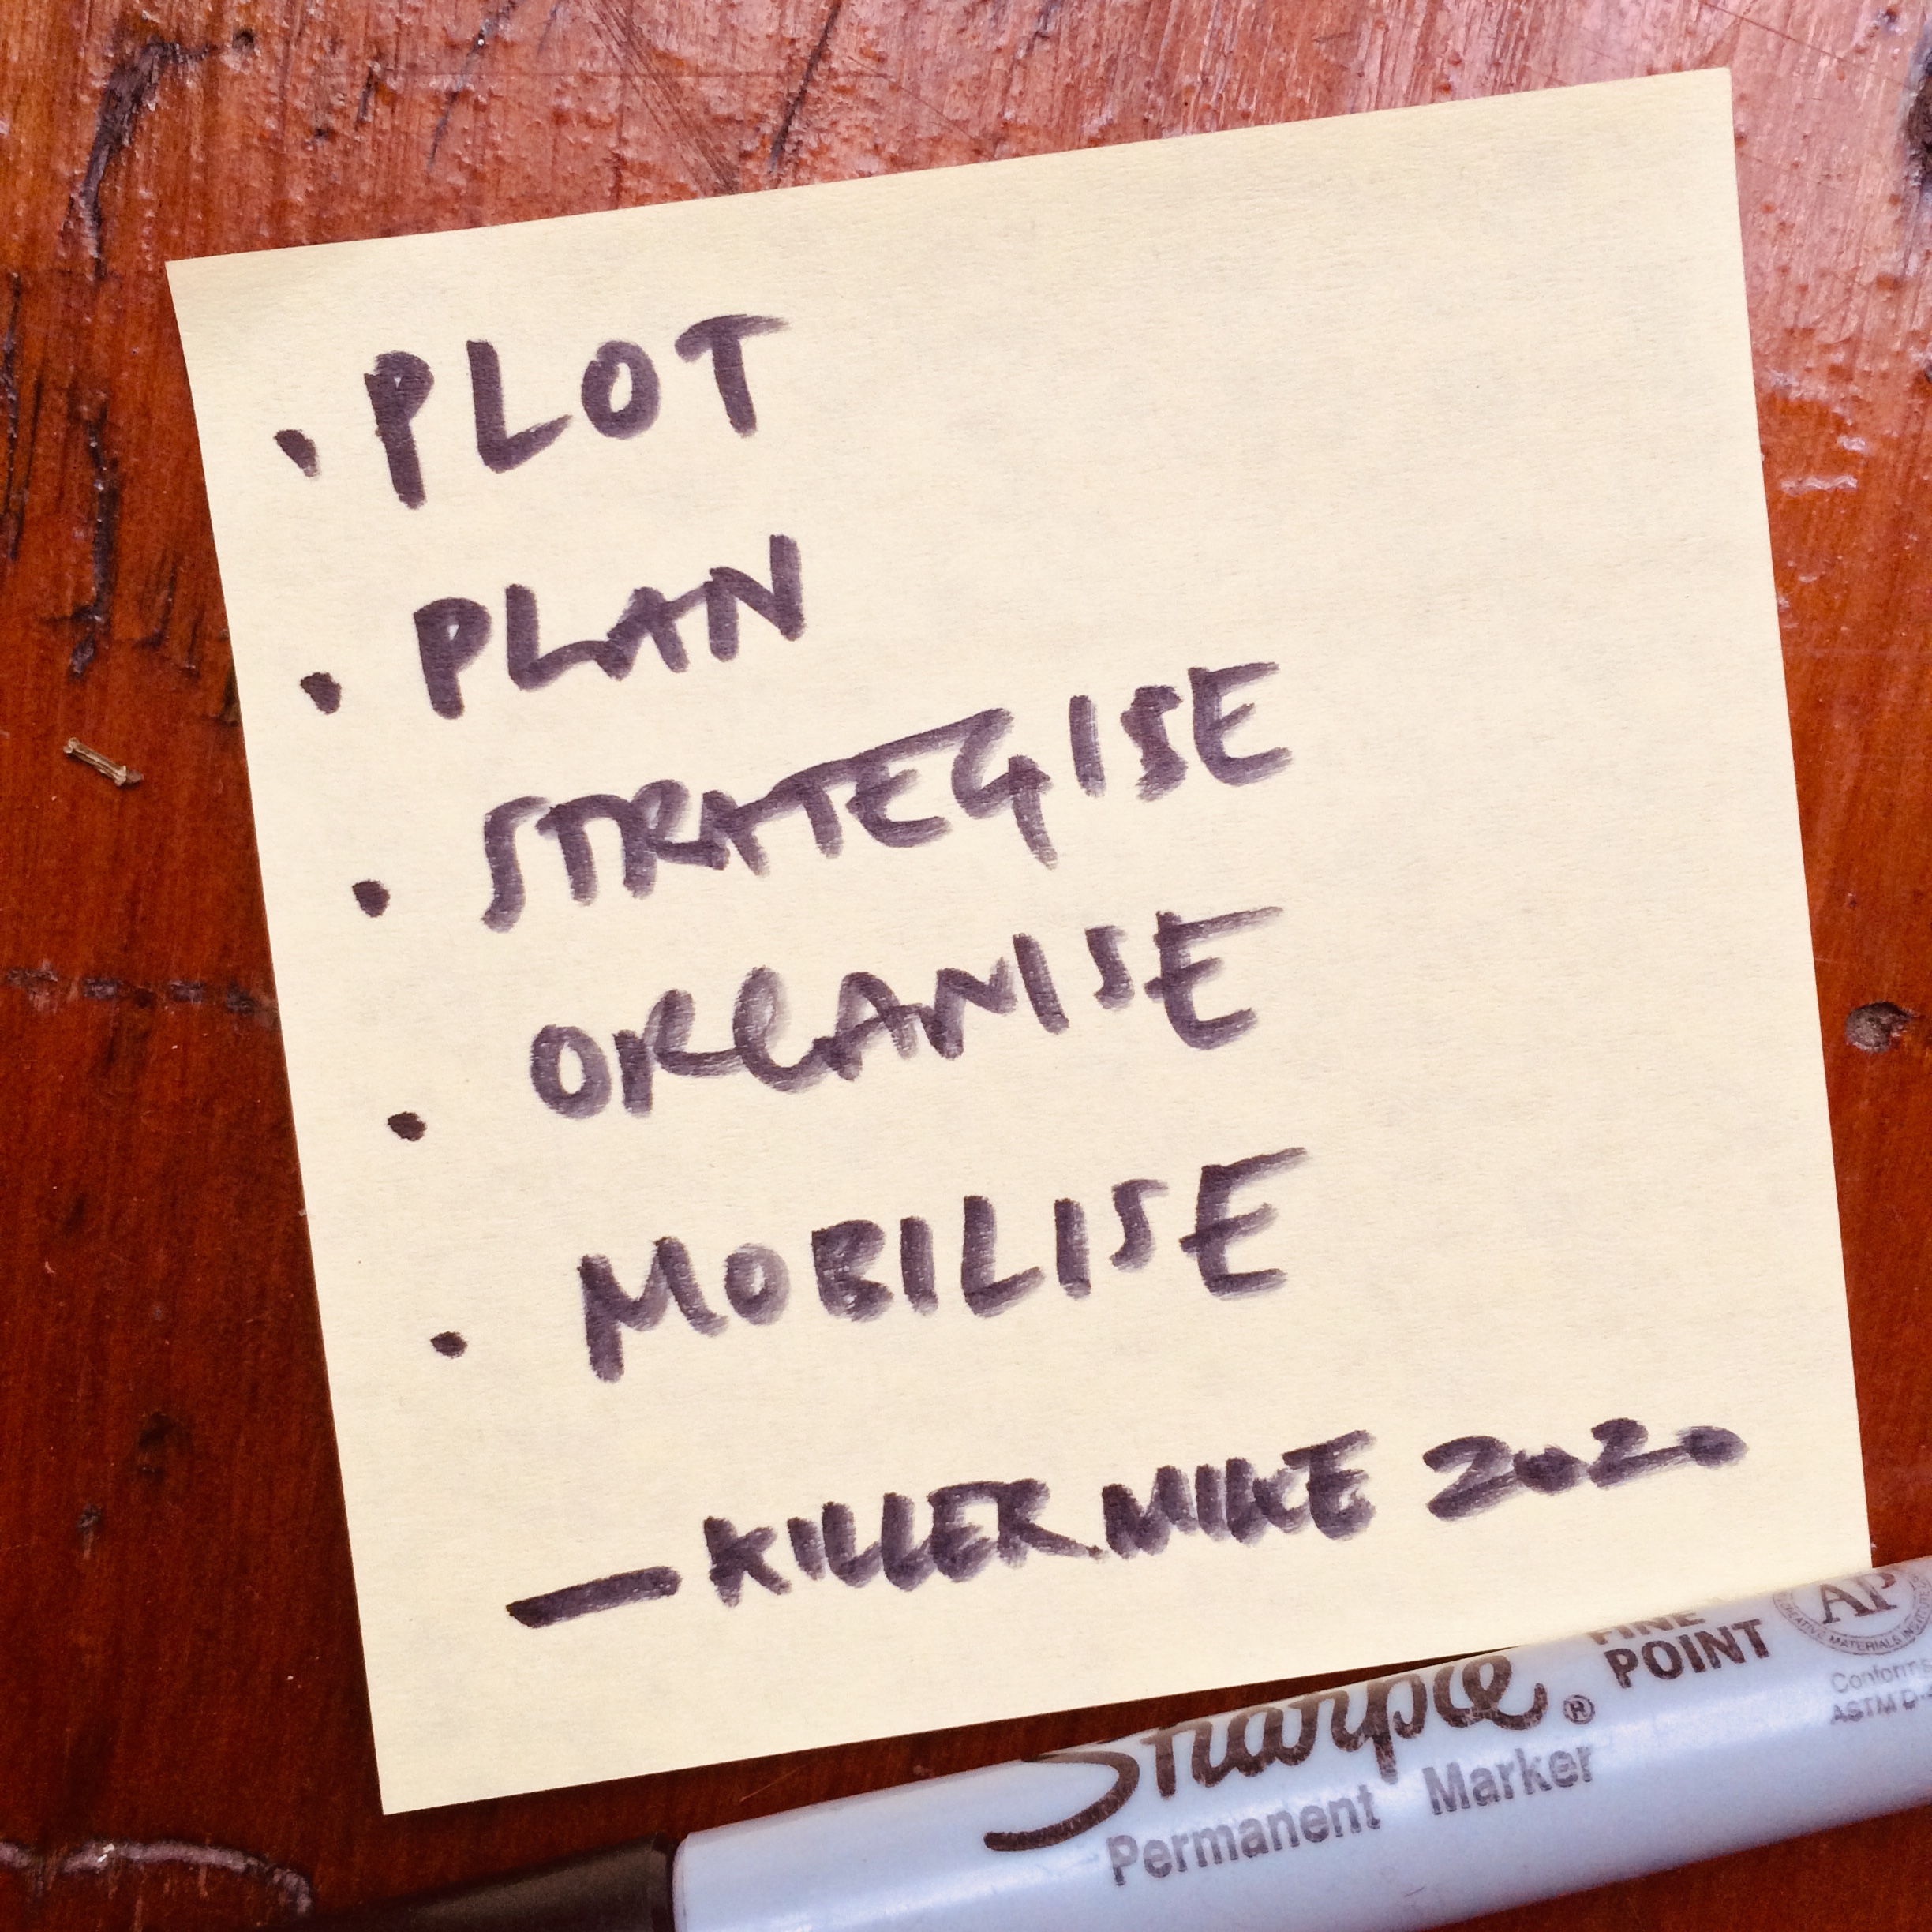 • PLOT
• PLAN
• STRATEGISE
• ORGANISE
• MOBILISE
— KILLER MIKE 2020
Sharpie®
FINE
POINT
Permanent Marker
AP
Conforms
ASTM D-